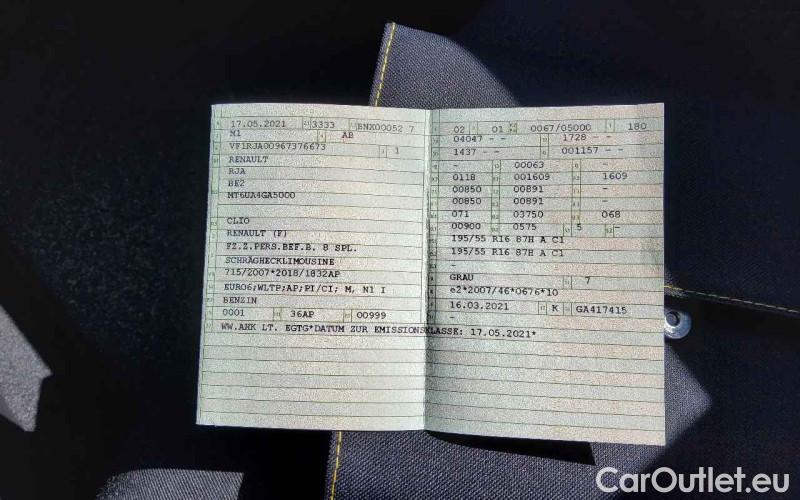 17.05.2021 3333 BNX00052 7
M1 AB
VF1RJA00967376673 1
RENAULT
RJA
BE2
MT6UA4GA5000
CLIO
RENAULT (F)
FZ.Z.PERS.BEF.B. 8 SPL.
SCHRÄGHECKLIMOUSINE
715/2007*2018/1832AP
EURO6;WLTP;AP;PI/CI; M, N1 I
BENZIN
0001 36AP 00999
WW.AHK LT. EGTG*DATUM ZUR EMISSIONSKLASSE: 17.05.2021*
02 01 0067/05000 180
04047 - - 1728 - -
1437 - - 001157 - -
- 00063 - -
0118 001609 1609
00850 00891 -
00850 00891 -
071 03750 068
00900 0575 5 -
195/55 R16 87H A C1
195/55 R16 87H A C1
-
GRAU 7
e2*2007/46*0676*10
16.03.2021 K GA417415
-
CarOutlet.eu